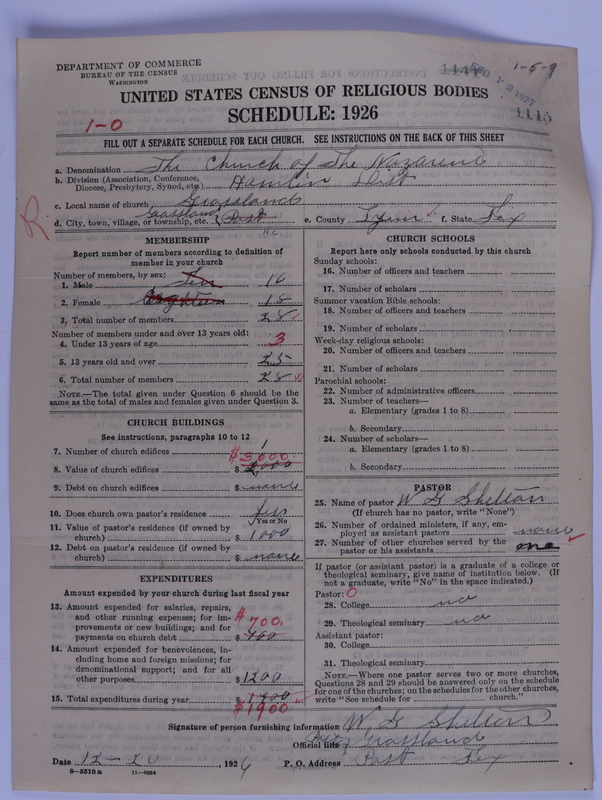 DEPARTMENT OF COMMERCE
BUREAU OF THE CENSUS
WASHINGTON
1144
1-5-9
UNITED STATES CENSUS OF RELIGIOUS BODIES
SCHEDULE: 1926
1145
1-0
FILL OUT A SEPARATE SCHEDULE FOR EACH CHURCH. SEE INSTRUCTIONS ON THE BACK OF THIS SHEET
a. Denomination The Church of The Nazarene
b. Division (Association, Conference, Diocese, Presbytery, Synod, etc.) Hamlin Dist
c. Local name of church Grassland
R
d. City, town, village, or township, etc. Grassland Post e. County Lynn f. State Tex
MEMBERSHIP
Report number of members according to definition of member in your church
Number of members, by sex:
1. Male Ten 10
2. Female Eighteen 18
3. Total number of members 28
Number of members under and over 13 years old:
4. Under 13 years of age 3
5. 13 years old and over 25
6. Total number of members 28
NOTE.—The total given under Question 6 should be the same as the total of males and females given under Question 3.
CHURCH BUILDINGS
See instructions, paragraphs 10 to 12
7. Number of church edifices 1
$3000.
8. Value of church edifices $
9. Debt on church edifices $ none
10. Does church own pastor's residence yes
Yes or No
11. Value of pastor's residence (if owned by church) $ 1000
12. Debt on pastor's residence (if owned by church) $ none
EXPENDITURES
Amount expended by your church during last fiscal year
13. Amount expended for salaries, repairs, and other running expenses; for improvements or new buildings; and for payments on church debt $ 700
$700.
14. Amount expended for benevolences, including home and foreign missions; for denominational support; and for all other purposes $ 1200
15. Total expenditures during year $
$1900
CHURCH SCHOOLS
Report here only schools conducted by this church
Sunday schools:
16. Number of officers and teachers
17. Number of scholars
Summer vacation Bible schools:
18. Number of officers and teachers
19. Number of scholars
Week-day religious schools:
20. Number of officers and teachers
21. Number of scholars
Parochial schools:
22. Number of administrative officers
23. Number of teachers—
a. Elementary (grades 1 to 8)
b. Secondary
24. Number of scholars—
a. Elementary (grades 1 to 8)
b. Secondary
PASTOR
25. Name of pastor W G Shelton
(If church has no pastor, write "None")
26. Number of ordained ministers, if any, employed as assistant pastors none
27. Number of other churches served by the pastor or his assistants one
If pastor (or assistant pastor) is a graduate of a college or theological seminary, give name of institution below. (If not a graduate, write "No" in the space indicated.)
Pastor: 0
28. College no
29. Theological seminary no
Assistant pastor:
30. College
31. Theological seminary
NOTE.—Where one pastor serves two or more churches, Questions 28 and 29 should be answered only on the schedule for one of the churches; on the schedules for the other churches, write "See schedule for church."
Signature of person furnishing information W G Shelton
Official title Grassland
Date 12-20, 1926 P. O. Address Post Tex
8-5518a 11-9054